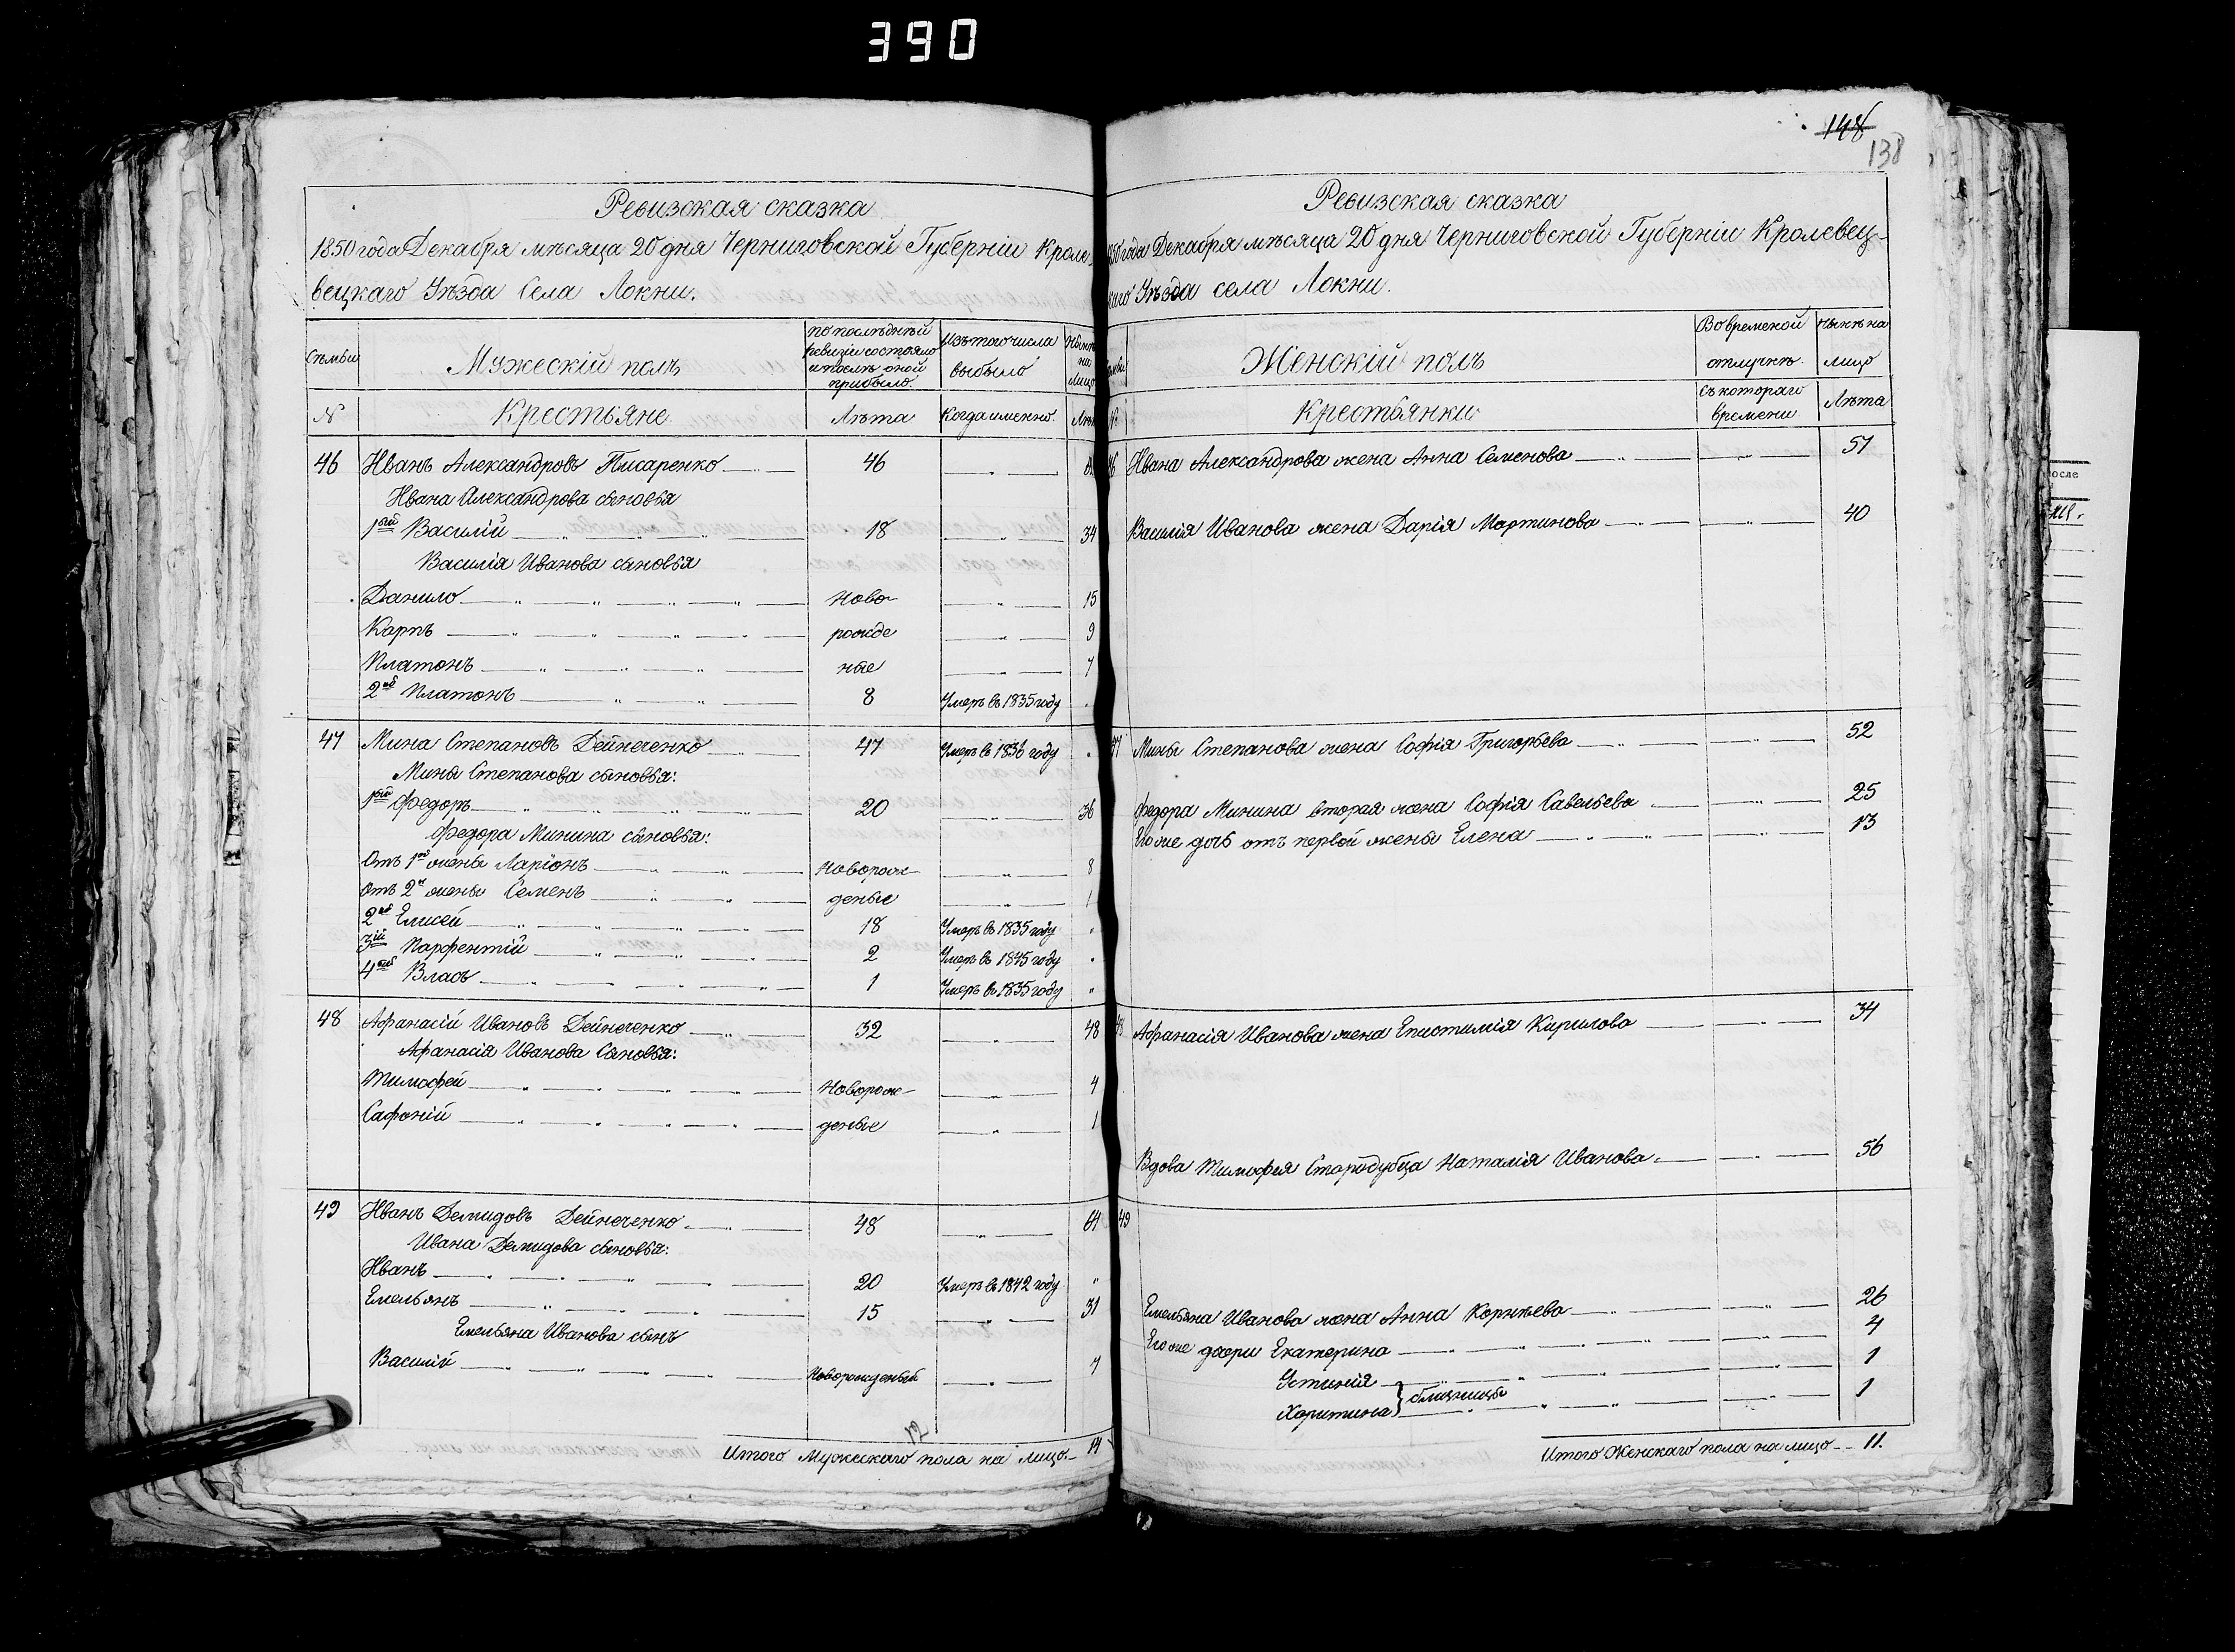 390
148
138
Ревизская сказка
1850 года Декабря мѣсяца 20 дня Черниговской Губерніи Кроле-
вецкаго Уѣзда Села Локни.
Семьи
Мужескій полъ
по послѣдней ревизіи состояло и послѣ оной прибыло.
Изъ того числа выбыло
Нынѣ на лицо
№
Крестьяне
Лѣта
Когда именно.
46 Иванъ Александровъ Писаренко 46
Ивана Александрова сыновья
1ый Василій 18 34
Василія Иванова сыновья
Данило Ново- 15
Карпъ рожде 9
Платонъ ные 7
2ой Платонъ 8 Умеръ въ 1835 году
47 Мина Степановъ Дейнеченко 47 Умеръ въ 1836 году
Мины Степанова сыновья:
1ый Федоръ 20 36
Федора Минина сыновья:
Отъ 1ой жены Ларіонъ Новорож- 8
Отъ 2й жены Семенъ деные 1
2ой Елисей 18 Умеръ въ 1835 году
3ій Парфентій 2 Умеръ въ 1845 году
4тый Власъ 1 Умеръ въ 1835 году
48 Афанасій Ивановъ Дейнеченко 32 48
Афанасія Иванова Сыновья:
Тимофей Новорож- 4
Сафоній деные 1
49 Иванъ Демидовъ Дейнеченко 48 64
Ивана Демидова сыновья:
Иванъ 20 Умеръ въ 1842 году
Емельянъ 15 31
Емельяна Иванова сынъ
Василій Новорожденый 7
Итого Мужескаго пола на лицо 14
Ревизская сказка
года Декабря мѣсяца 20 дня Черниговской Губерніи Кролевец-
каго Уѣзда села Локни.
Женскій полъ
Во временой отлучкѣ.
Нынѣ на лицо
Крестьянки
Съ котораго времени
Лѣта
Ивана Александрова жена Анна Семенова 57
Василія Иванова жена Дарія Мартинова 40
47 Мины Степанова жена Софія Григорьева 52
Федора Минина вторая жена Софія Савельева 25
Его же дочь отъ первой жены Елена 13
Афанасія Иванова жена Епистимія Кирилова 34
Вдова Тимофея Стародубца Наталія Иванова 56
49
Емельяна Иванова жена Анна Корнѣева 26
Его же дочери Екатерина 4
Устинія 1
Харитина близницы 1
Итого Женскаго пола на лицо 11.